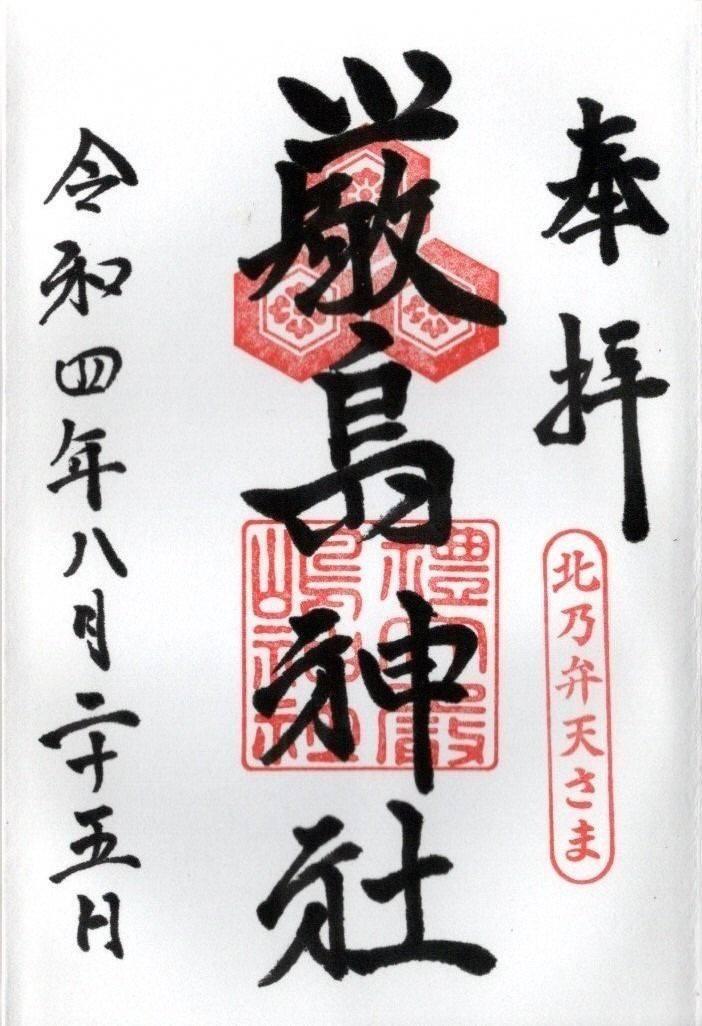 奉拝
北乃弁天さま
厳島神社
禮文嚴
嶋神社
令和四年八月二十五日